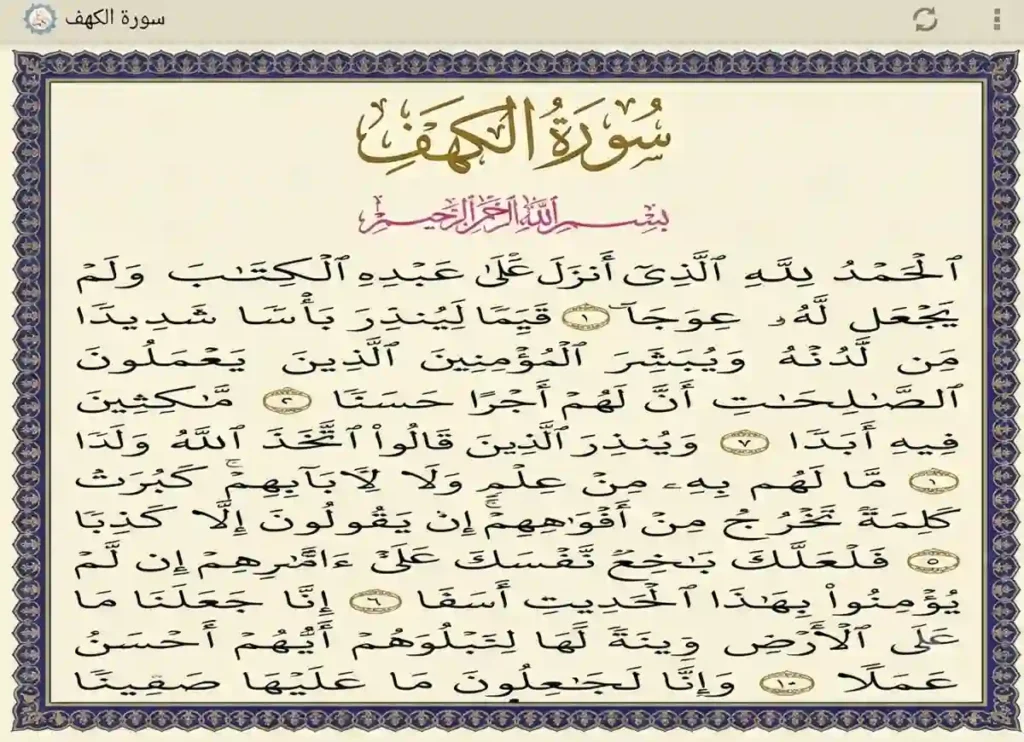 سورة الكهف
سُورَةُ الكَهَفِ
بِسْمِ ٱللَّهِ ٱلرَّحْمَٰنِ ٱلرَّحِيمِ
ٱلْحَمْدُ لِلَّهِ ٱلَّذِىٓ أَنزَلَ عَلَىٰ عَبْدِهِ ٱلْكِتَـٰبَ وَلَمْ
يَجْعَل لَّهُۥ عِوَجَآ ١ قَيَمَا لَيُنذِرَ بَأْسَا شَدِيدَا
مَن لَّدُنْهُ وَيُبَشَّرَ ٱلْمُؤْمِنِينَ ٱلَّذِينَ يَعْمَلُونَ
ٱلصَّـٰلِحَـٰتِ أَنَّ لَهُمْ أَجْرًا حَسَنَا ٢ مَّـٰكِثِينَ
فِيهِ أَبَدَا ٧ وَيُنذِرَ ٱلَّذِينَ قَالُوا۟ ٱتَّخَذَ ٱللَّهُ وَلَدَا
١ مَّا لَهُم بِهِۦ مِنْ عِلْمٍ وَلَا لِآبَآبِهِمْۚ كَبُرَتْ
كَلِمَةً تَخْرُجُ مِنْ أَفْوَٰهِهِمْۚ إِن يَقُولُونَ إِلَّا كَذِبَا
٥ فَلَعَلَّكَ بَـٰخِعٌ نَّفْسَكَ عَلَىٰٓ ءَامَّـٰرِهِمْ إِن لَّمْ
يُؤْمِنُوا۟ بِهَـٰذَا ٱلْحَدِيتِ أَسَفَا ٦ إِنَّا جَعَلَنَا مَا
عَلَى ٱلْأَرْضِ وِينَةً لَّهَا لِتَبْلُوَهُمْ أَيُّهُمْ أَحْسَنُ
عَمَلًا ١٠ وَإِنَّا لَجَـٰعِلُونَ مَا عَلَيْهَا صَفِينَا